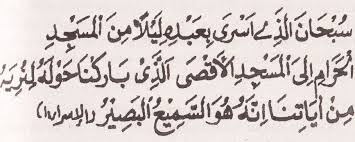 سُبْحَانَ الَّذِي أَسْرَى بِعَبْدِهِ لَيْلًا مِنَ الْمَسْجِدِ
الْحَرَامِ إِلَى الْمَسْجِدِ الْأَقْصَى الَّذِي بَارَكْنَا حَوْلَهُ لِنُرِيَهُ
مِنْ آيَاتِنَا إِنَّهُ هُوَ السَّمِيعُ الْبَصِيرُ (الإسراء ١)